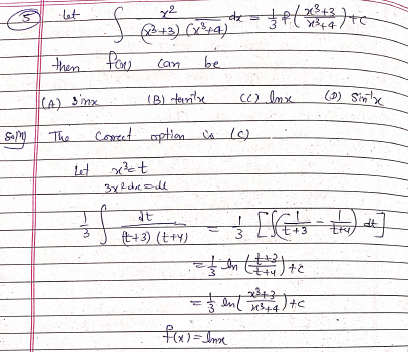 (5) Let ∫ x²/((x³+3)(x³+4)) dx = 1/3 f((x³+3)/(x³+4)) + c
then f(x) can be
(A) sinx (B) tan⁻¹x (C) lnx (D) sin⁻¹x
Sol(5) The Correct option is (C)
Let x³=t
3x²dx=dt
1/3 ∫ dt/((t+3)(t+4)) = 1/3 [∫(1/(t+3) - 1/(t+4)) dt]
= 1/3 ln((t+3)/(t+4)) + c
= 1/3 ln((x³+3)/(x³+4)) + c
f(x) = lnx